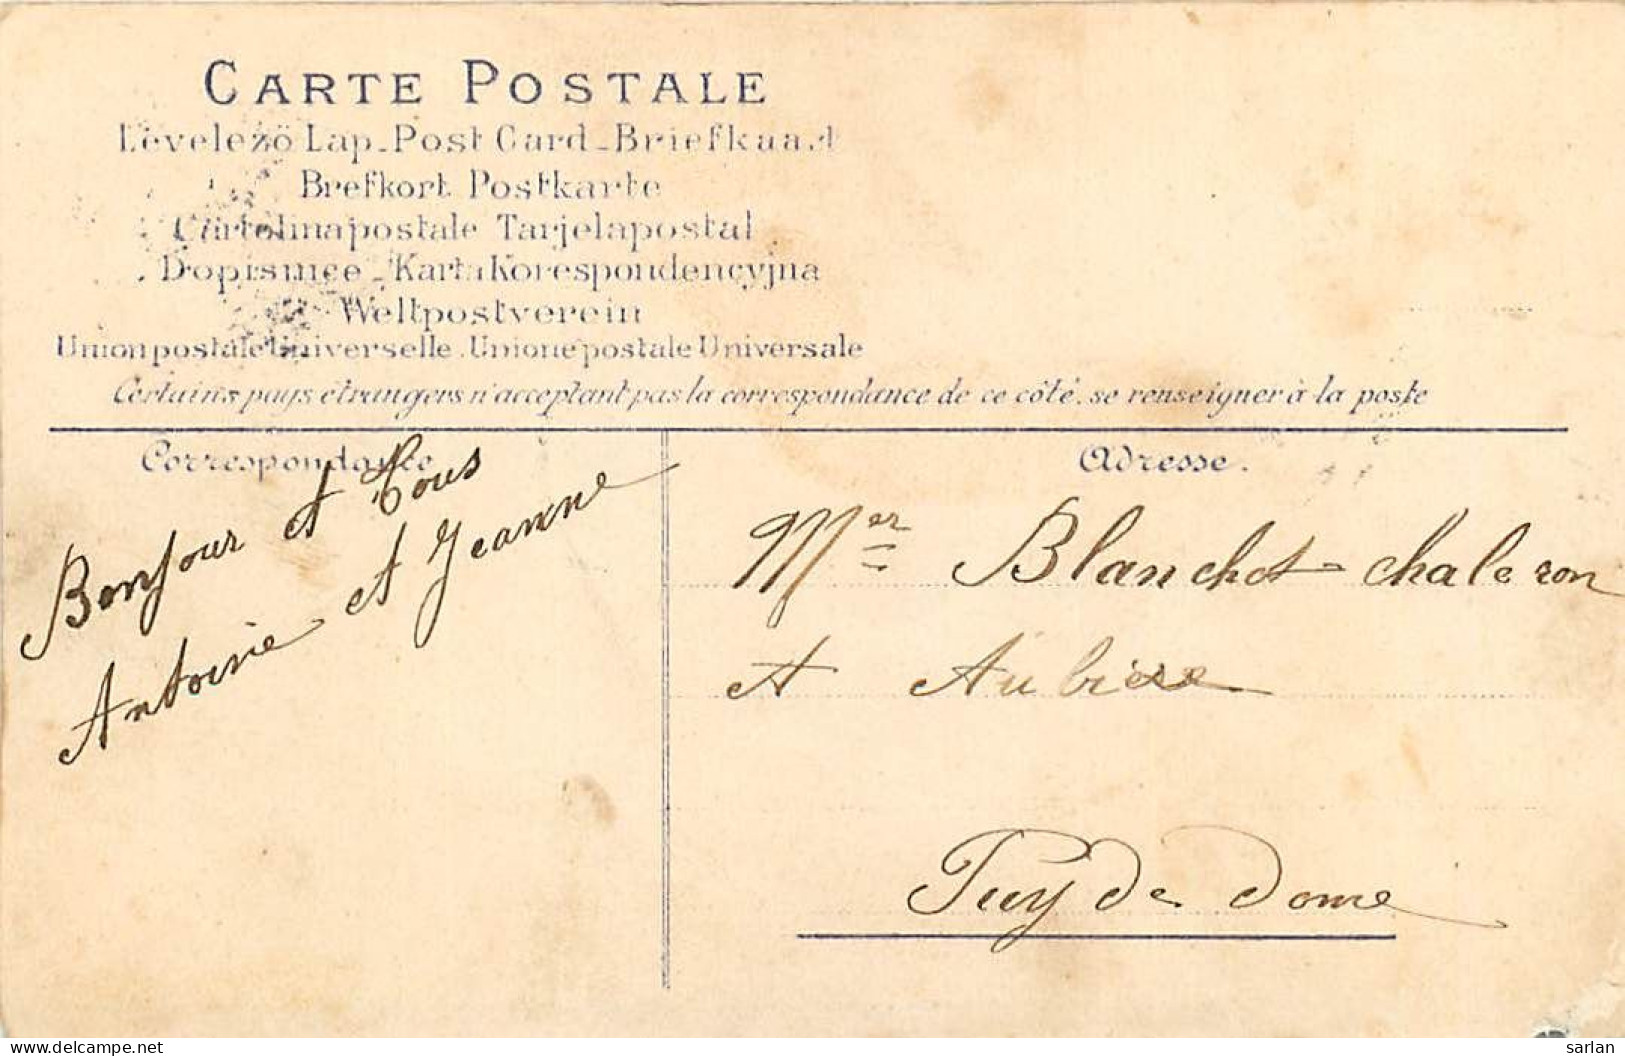 CARTE POSTALE
Levelező Lap_Post Card_Briefkaart
Brefkort Postkarte
Cartolina postale Tarjela postal
Dopisnice_Karta Korespondencyjna
Weltpostverein
Union postale Universelle. Unione postale Universale
Certains pays étrangers n'acceptant pas la correspondance de ce côté, se renseigner à la poste
Correspondance
Bonjour A Tous
Antoine et Jeanne
Adresse.
Mer Blanchet-chaleron
A Aubière
Puy de Dome
delcampe.net
sarlan